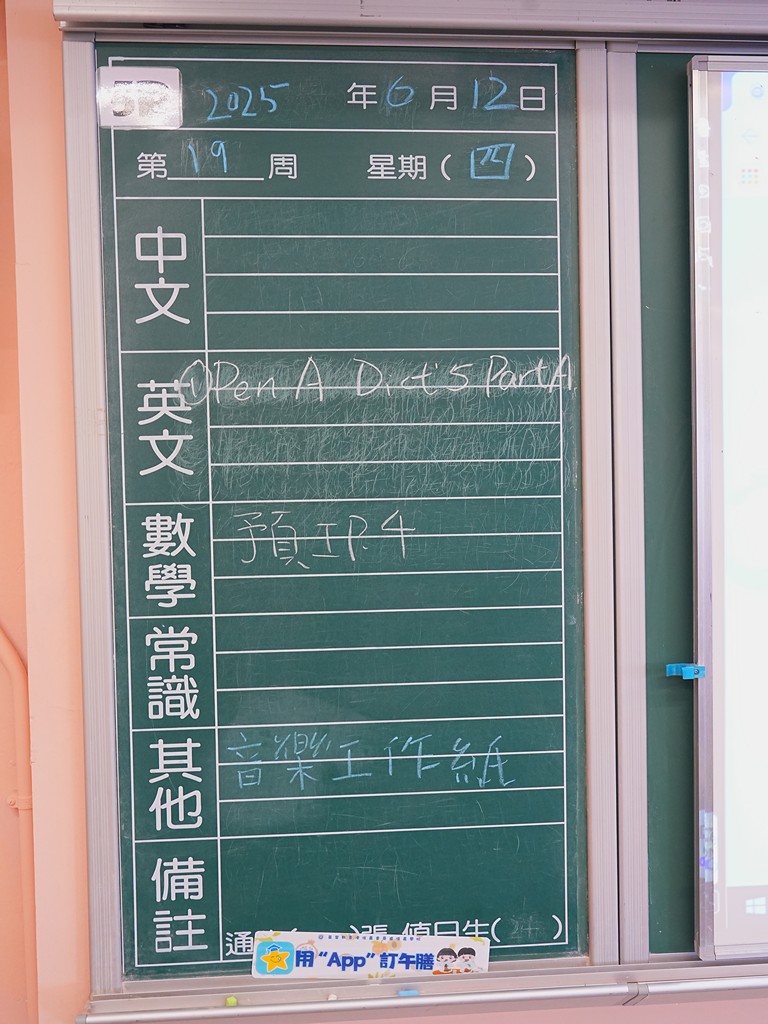 2025 年 6 月 12 日
第 19 周 星期 ( 四 )
中文
英文 ① Open A Dict 5 Part A
數學 預工P.4
常識
其他 音樂工作紙
備註
通 ( )張 值日生( )
用 “App” 訂午膳